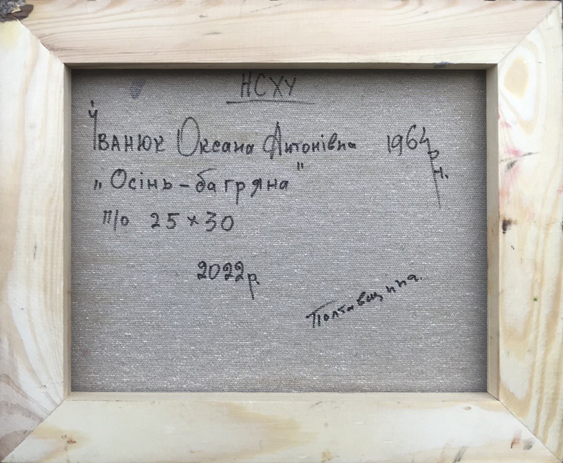 НСХУ
Іванюк Оксана Антонівна 1964 р.н.
„Осінь-багряна"
п/о 25 × 30
2022р.
Полтавщина.